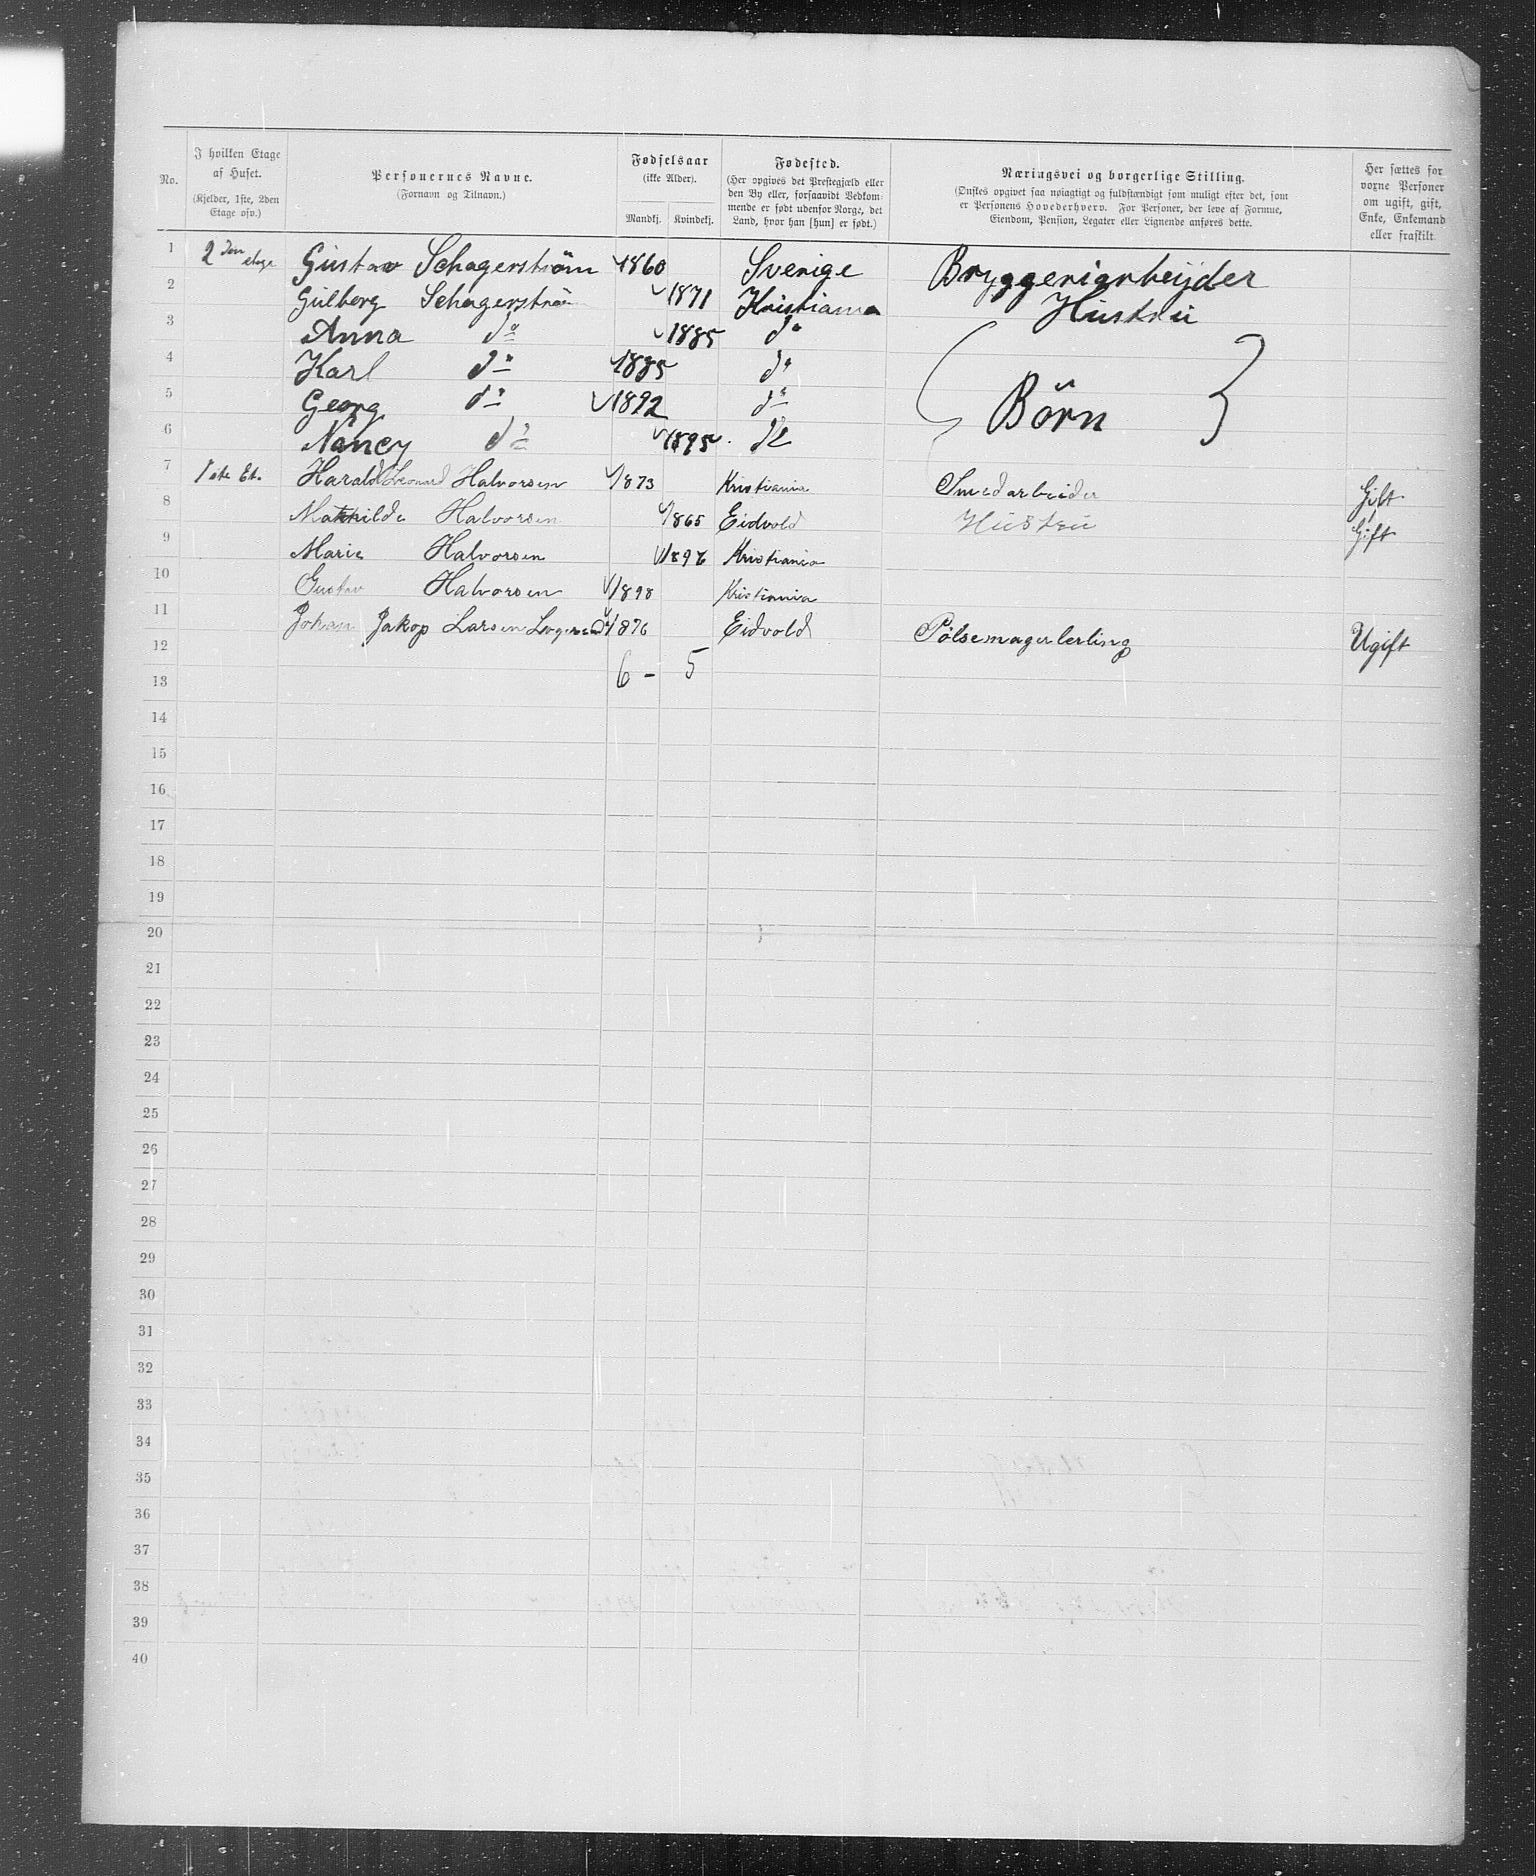 No. | I hvilken Etage af Huset. (Kjelder, 1ste, 2den Etage osv.) | Personernes Navne. (Fornavn og Tilnavn.) | Fødselsaar (ikke Alder). Mandkj. Kvindekj. | Fødested. (Her opgives det Prestegjæld eller den By eller, forsaavidt Vedkommende er født udenfor Norge, det Land, hvor han [hun] er født.) | Næringsvei og borgerlige Stilling. (Ønskes opgivet saa nøiagtigt og fuldstændigt som muligt efter det, som er Personens Hovederhverv. For Personer, der leve af Formue, Eiendom, Pension, Legater eller Lignende anføres dette.) | Her sættes for voxne Personer om ugift, gift, Enke, Enkemand eller fraskilt.
1 2den etage Gustav Schagerström 1860 Sverige Bryggeriarbeijder
2 Gulberg Schagerström 1871 Kristiania Hustru
3 Anna do 1885 do
4 Karl do 1885 do
5 Georg do 1892 do Börn
6 Nancy do 1895 do
7 1ste Et. Harald Leonard Halvorsen 1873 Kristiania Smedarbeider Gift
8 Mathilde Halvorsen 1865 Eidvold Hustru Gift
9 Marie Halvorsen 1896 Kristiania
10 Gustav Halvorsen 1898 Kristiania
11 Johan Jakop Larsen 1876 Eidvold Pölsemagerlerling Ugift
12 6 - 5
13
14
15
16
17
18
19
20
21
22
23
24
25
26
27
28
29
30
31
32
33
34
35
36
37
38
39
40